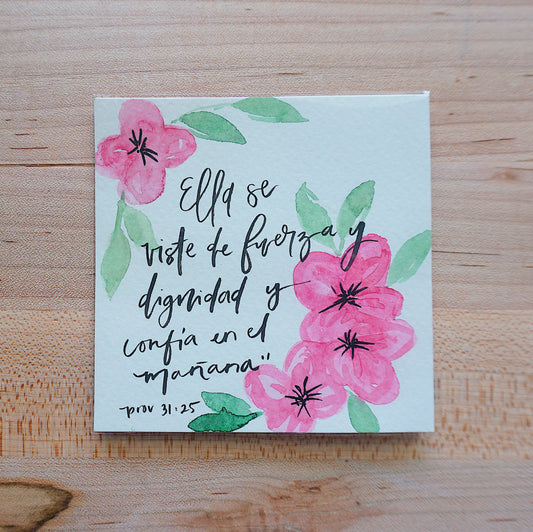 Ella se
viste de fuerza y
dignidad y
confía en el
mañana"
prov 31:25